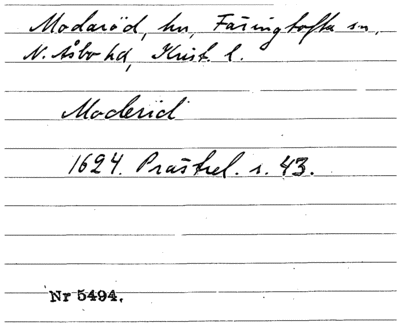 Modaröd, hu, Färingtofta sn,
N. Åsbo hd, Krist. l.
Moderid
1624. Prästrel. s. 43.
Nr 5494.